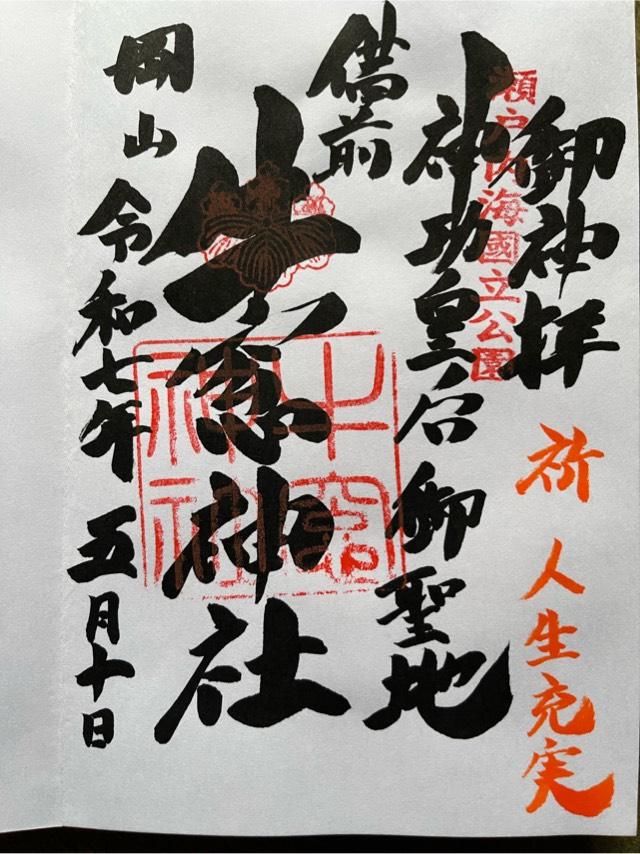 御神拝
祈 人生充実
瀬戸内海國立公園
神功皇后御聖地
備前
牛窓神社
牛窓
神社
岡山 令和七年五月十日